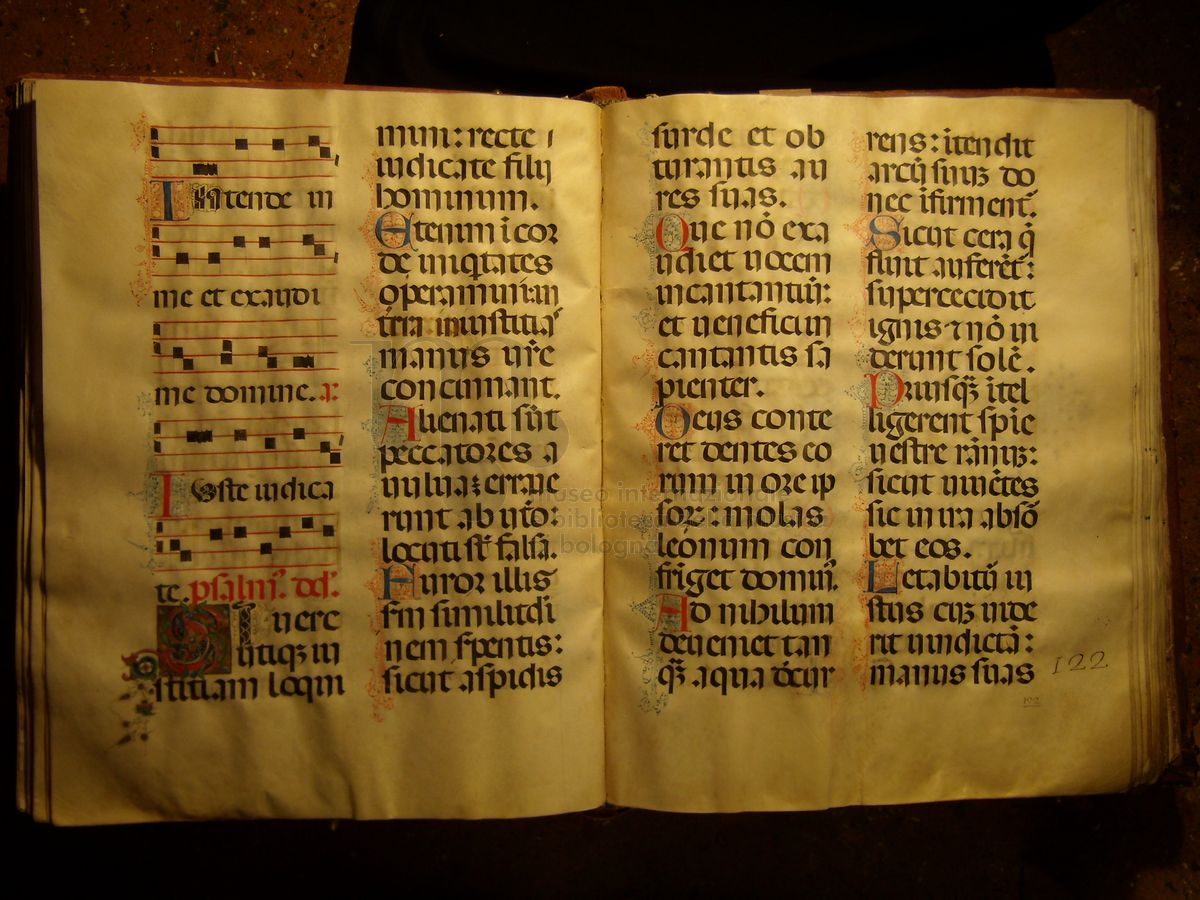 Intende in
me et exaudi
me domine. a:
Iuste iudica
te. psalm9. dd'.
SI uere
utiqꝫ iu
stitiam loqui
mini: recte i
udicate filij
hominum.
Etenim i cor
de iniqtates
operamini: in
terra iniustitia
manus ure
concinnant.
Alienati sūt
peccatores a
uulua: erraue
runt ab utō:
locuti st falsa.
Furor illis
sm similitudi
nem spentis:
sicut aspidis
surde et ob
turantis au
res suas.
Que nō exa
udiet uocem
incantantiū:
et uenefici in
cantantis sa
pienter.
Deus conte
ret dentes eo
rum in ore ip
sorꝫ: molas
leōnum con
friget domin9.
Ad nihilum
deuenient tan
qꝫ aqua dcur
rens: itendit
arcū suuꝫ do
nec ifirment'.
Sicut cera q̄
fluit auferēt:
supercecidit
ignis ⁊ nō ui
derunt solē.
Priusqꝫ itel
ligerent spie
uestre rānuꝫ:
sicut uiuētes
sic in ira absō
bet eos.
Letabitū iu
stus cuꝫ uide
rit uindictā:
manus suas
122
museo internazionale
biblioteca
bologna